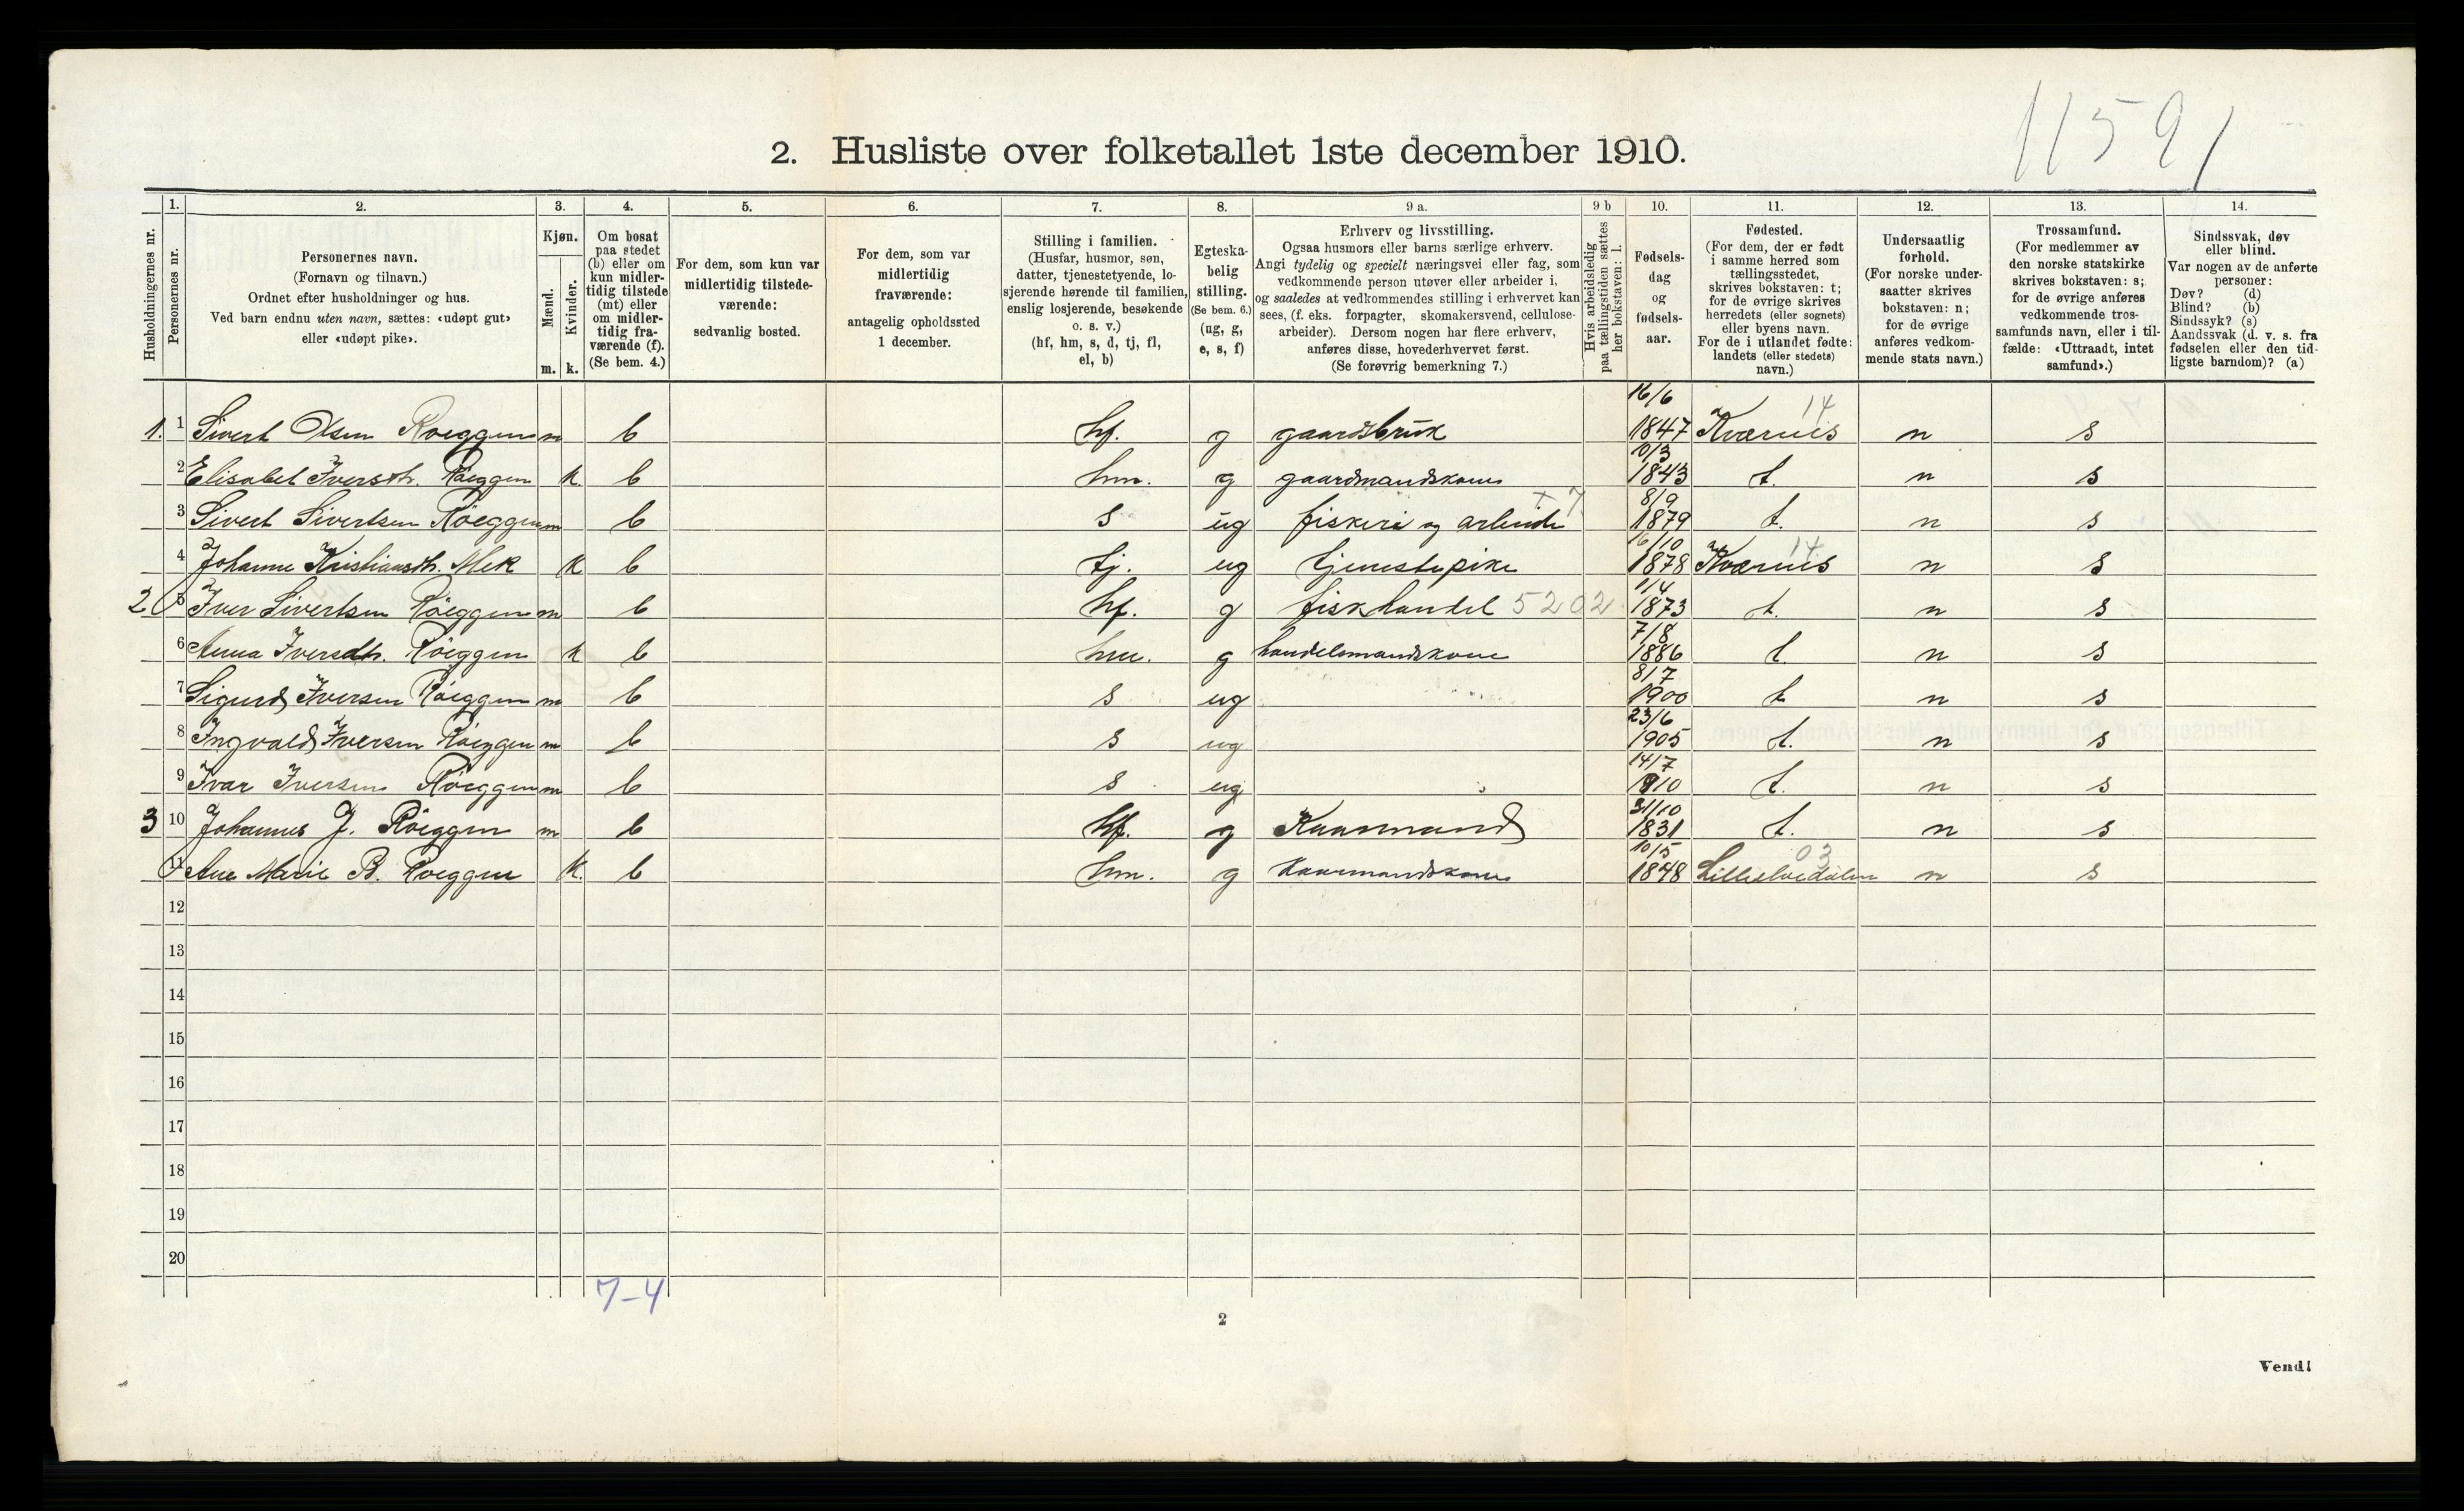 11591
2. Husliste over folketallet 1ste december 1910.
Husholdningernes nr.
1. Personernes nr.
2. Personernes navn. (Fornavn og tilnavn.) Ordnet efter husholdninger og hus. Ved barn endnu uten navn, sættes: «udøpt gut» eller «udøpt pike».
3. Kjøn. Mænd. m. Kvinder. k.
4. Om bosat paa stedet (b) eller om kun midlertidig tilstede (mt) eller om midlertidig fraværende (f). (Se bem. 4.)
5. For dem, som kun var midlertidig tilstedeværende: sedvanlig bosted.
6. For dem, som var midlertidig fraværende: antagelig opholdssted 1 december.
7. Stilling i familien. (Husfar, husmor, søn, datter, tjenestetyende, losjerende hørende til familien, enslig losjerende, besøkende o. s. v.) (hf, hm, s, d, tj, fl, el, b)
8. Egteskabelig stilling. (Se bem. 6.) (ug, g, e, s, f)
9 a. Erhverv og livsstilling. Ogsaa husmors eller barns særlige erhverv. Angi tydelig og specielt næringsvei eller fag, som vedkommende person utøver eller arbeider i, og saaledes at vedkommendes stilling i erhvervet kan sees, (f. eks. forpagter, skomakersvend, cellulosearbeider). Dersom nogen har flere erhverv, anføres disse, hovederhvervet først. (Se forøvrig bemerkning 7.)
9 b Hvis arbeidsledig paa tællingstiden sættes her bokstaven: l.
10. Fødselsdag og fødselsaar.
11. Fødested. (For dem, der er født i samme herred som tællingsstedet, skrives bokstaven: t; for de øvrige skrives herredets (eller sognets) eller byens navn. For de i utlandet fødte: landets (eller stedets) navn.)
12. Undersaatlig forhold. (For norske undersaatter skrives bokstaven: n; for de øvrige anføres vedkommende stats navn.)
13. Trossamfund. (For medlemmer av den norske statskirke skrives bokstaven: s; for de øvrige anføres vedkommende trossamfunds navn, eller i tilfælde: «Uttraadt, intet samfund».)
14. Sindssvak, døv eller blind. Var nogen av de anførte personer: Døv? (d) Blind? (b) Sindssyk? (s) Aandssvak (d. v. s. fra fødselen eller den tidligste barndom)? (a)
1. 1 Sivert Olsen Roeggen m b hf. g gaardsbruk 16/6 1847 Kværnes 14 n s
2 Elisabet Iversdtr. Røeggen k b hm. g gaardmandskone 10/3 1843 t. n s
3 Sivert Sivertsen Röeggen m b s ug fiskeri og arbeide + 7 8/9 1879 t. n s
4 Johanne Kristiansdtr. Mek k b tj. ug tjenestepike 16/10 1878 Kværnes 14 n s
2 5 Iver Sivertsen Röeggen m b hf. g fiskhandel 5202 1/4 1873 t. n s
6 Anna Iversdtr. Röiggen k b hm. g handelsmandskone 7/8 1886 t. n s
7 Sigurd Iversen Röeggen m b s ug 8/7 1900 t n s
8 Ingvald Iversen Röeggen m b s ug 23/6 1905 t. n s
9 Ivar Iversen Röeggen m b s ug 14/7 1910 t. n s
3 10 Johannes J. Röeggen m b hf. g Kaarmand 31/10 1831 t. n s
11 Ane Marie B. Roeggen k. b hm. g Kaarmandskone 10/5 1848 Lilleelvedalen 03 n s
12
13
14
15
16
17
18
19
20
7-4
2
Vend!